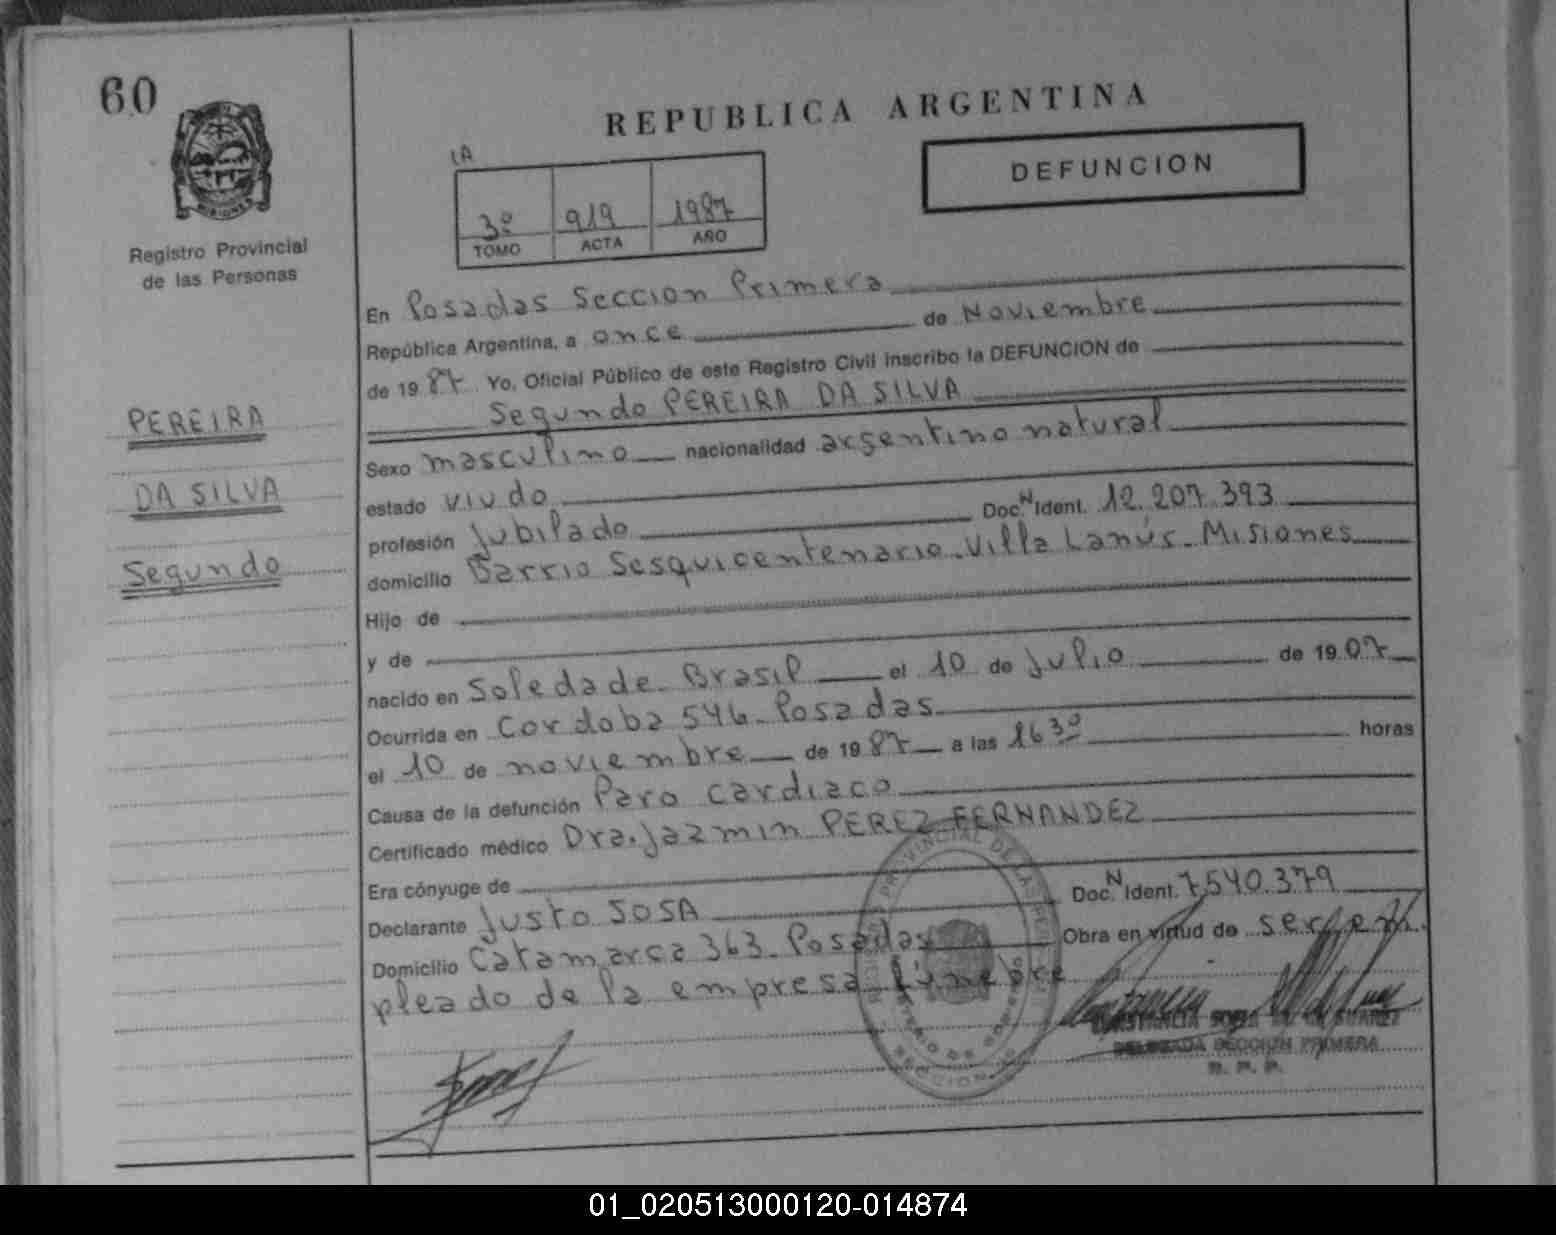 60
MISIONES
Registro Provincial
de las Personas
PEREIRA
DA SILVA
Segundo
REPUBLICA ARGENTINA
DEFUNCION
1A
3º 919 1987
TOMO ACTA AÑO
En Posadas Seccion Primera
República Argentina, a once de Noviembre
de 19 87 Yo, Oficial Público de este Registro Civil inscribo la DEFUNCION de
Segundo PEREIRA DA SILVA
Sexo masculino nacionalidad argentino natural
estado viudo
profesión Jubilado Doc.N Ident. 12.207.393
domicilio Barrio Sesquicentenario - Villa Lanús - Misiones
Hijo de
y de
nacido en Soledade - Brasil el 10 de Julio de 19 07
Ocurrida en Cordoba 546 - Posadas
el 10 de noviembre de 19 87 a las 16 30 horas
Causa de la defunción Paro cardiaco
Certificado médico Dra. Jazmin PEREZ FERNANDEZ
Era cónyuge de
Declarante Justo SOSA Doc.N Ident. 7.540.379
Domicilio Catamarca 363 - Posadas Obra en virtud de ser em
pleado de la empresa fúnebre
DELEGADA SECCION PRIMERA
R. P. P.
01_020513000120-014874